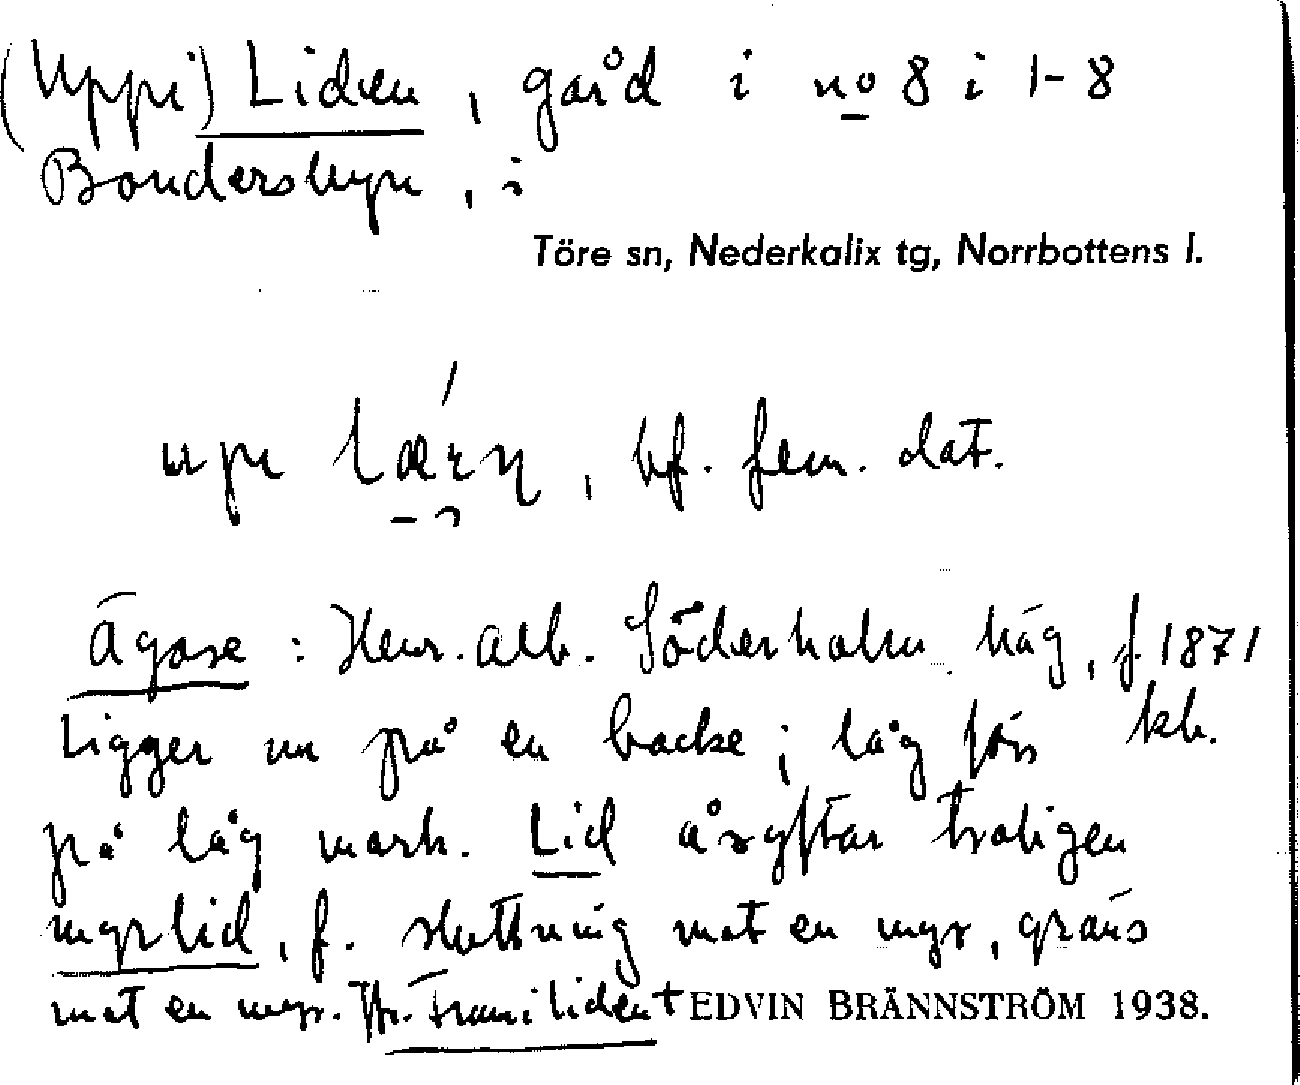 (Uppi) Liden, gård i no 8 i 1-8
Bondersbyn, i
Töre sn, Nederkalix tg, Norrbottens l.
upe lǽrn, bf. fem. dat.
Ägare: Henr. Alb. Söderholm häg, f. 1871
Ligger nu på en backe; låg förr kb.
på låg mark. Lid åsyftar troligen
myrlid, f. sluttning mot en myr, gräns
mot en myr. Jfr. Frami liden + EDVIN BRÄNNSTRÖM 1938.